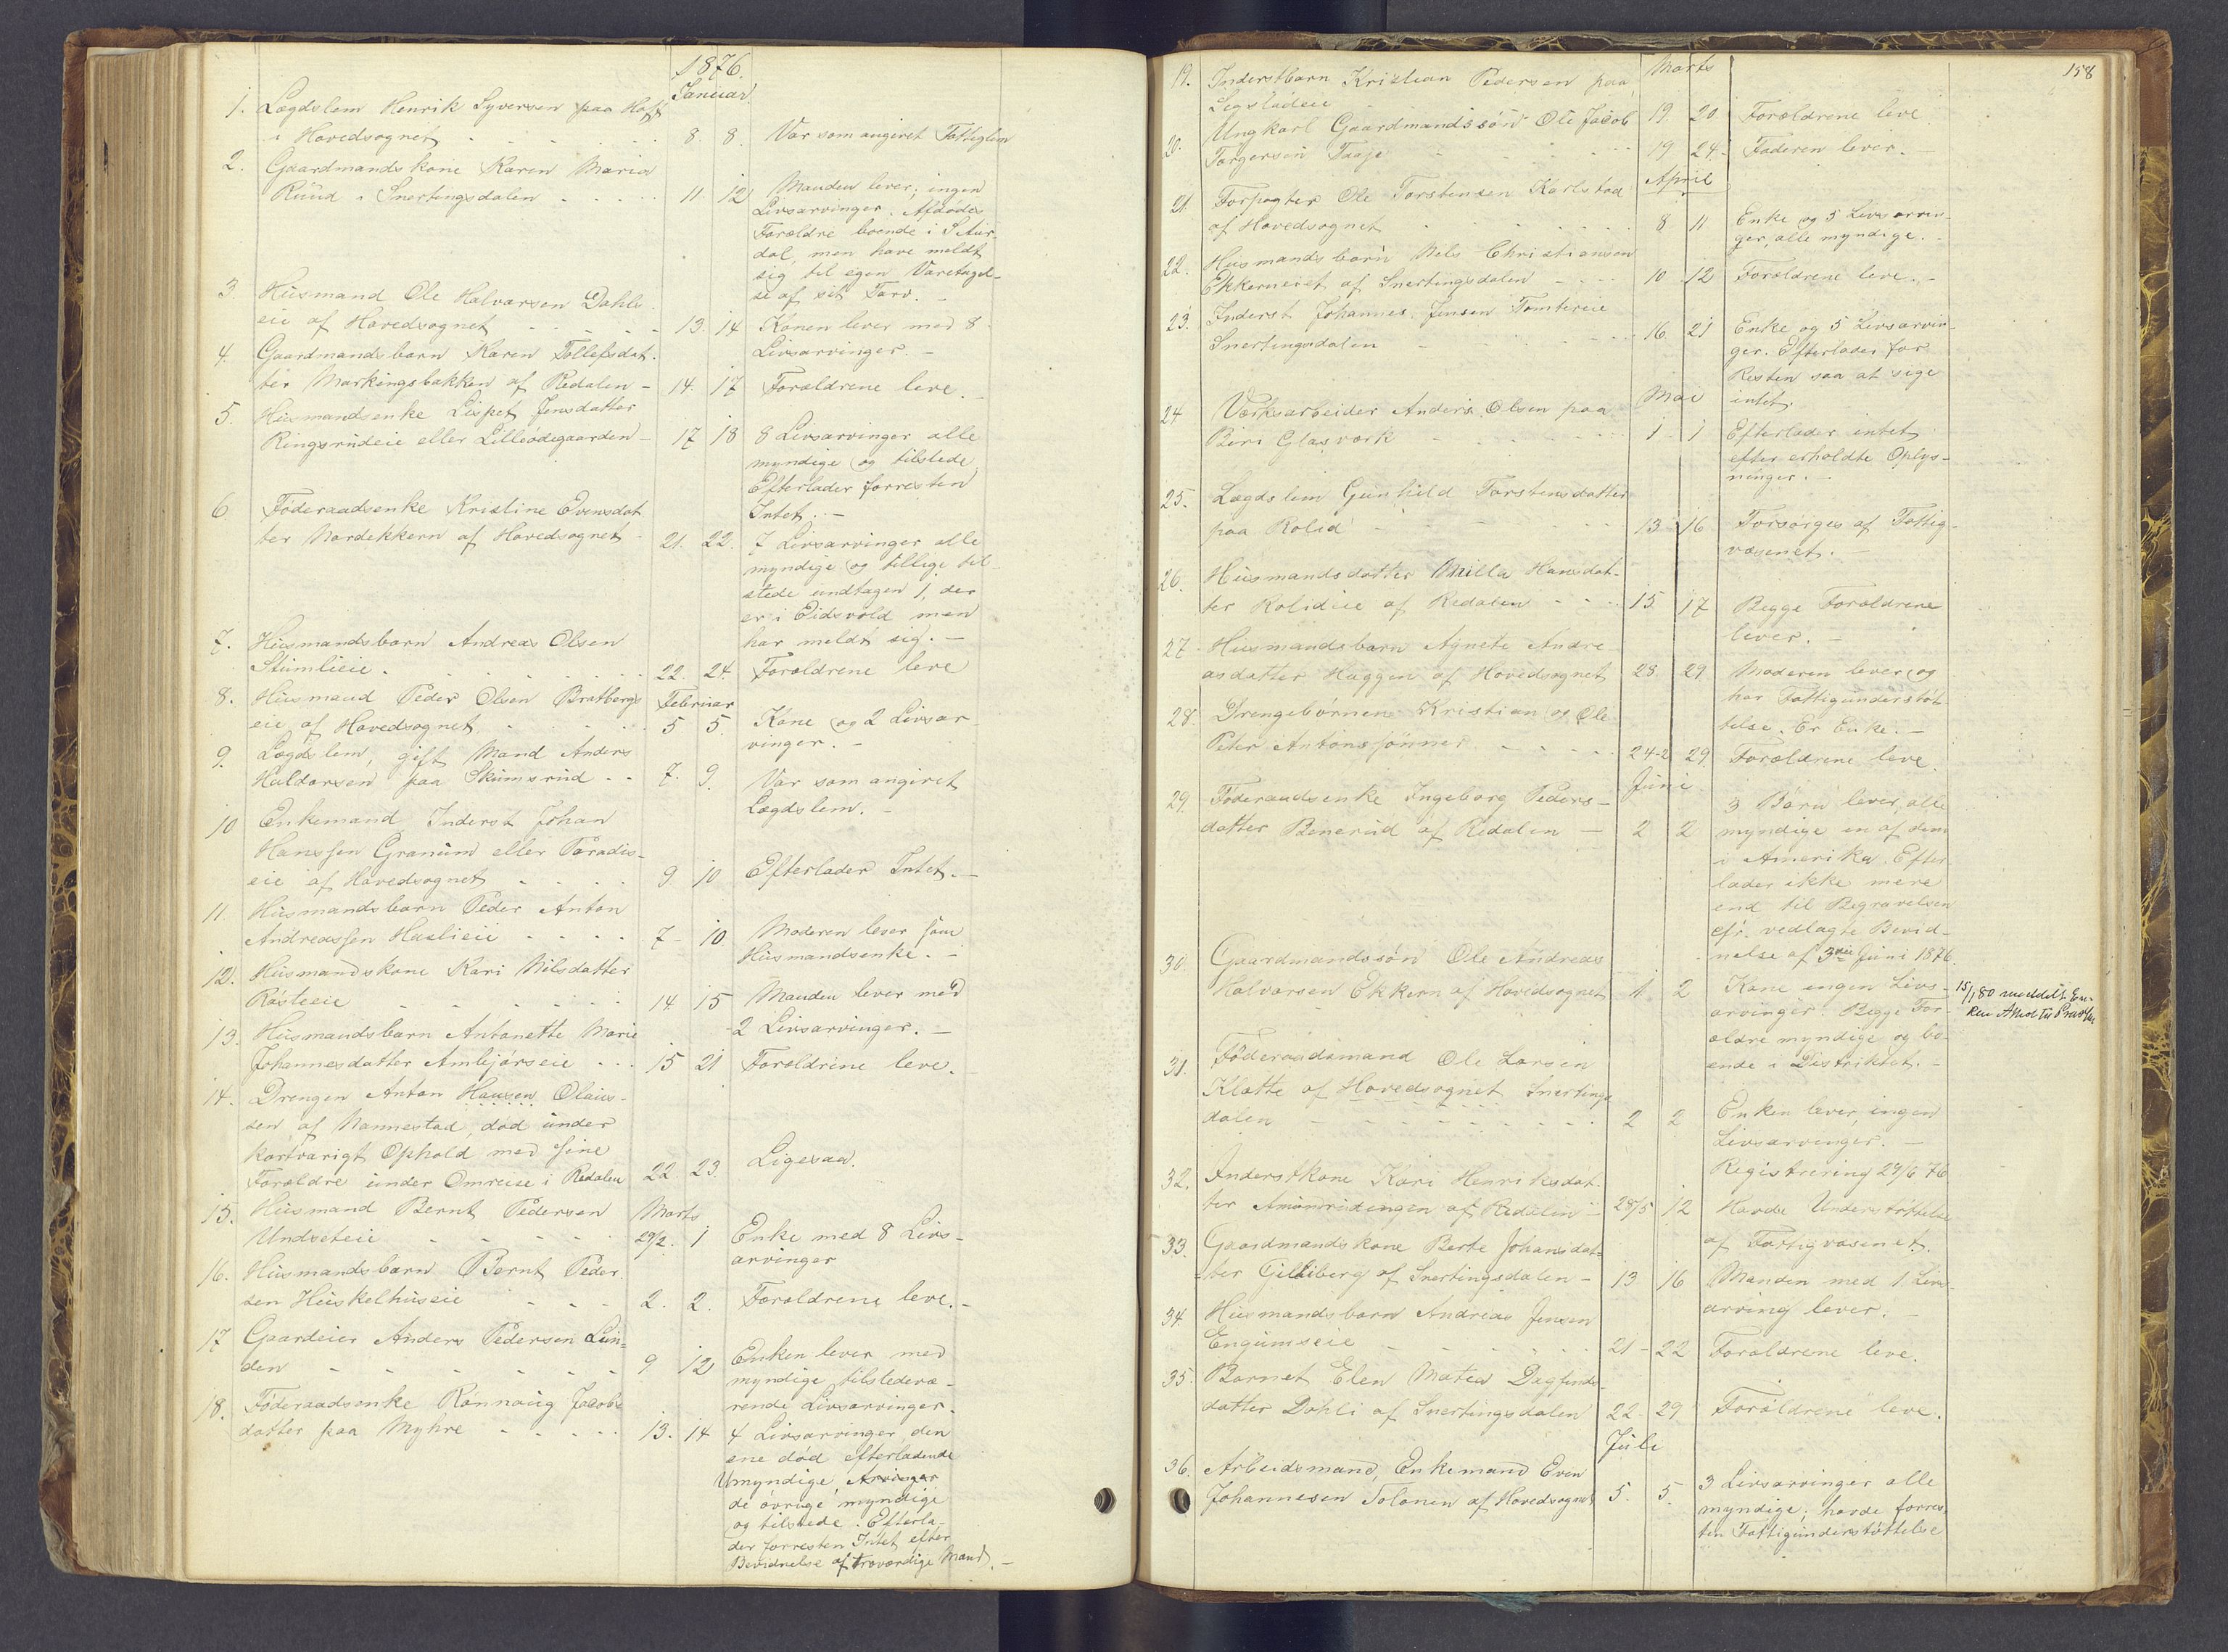 1876.
Januar
1. Lægdslem Henrik Syversen paa Hoff
i Hovedsognet 8. 8. Var som angivet Fattiglem
2. Gaardmandskone Karen Maria
Ruud i Snertingsdalen 11. 12 Manden lever; ingen
Livsarvinger. Afdødes
Forældre boende i S Aur-
dal, men have meldt
sig til egen Varetagel-
se af sit Tarv. –
3. Husmand Ole Halvorsen Dahls-
eie af Hovedsognet 13. 14 Konen lever med 8
Livsarvinger. –
4. Gaardmandsbarn Karen Tollefsdat-
ter Markengsbakken af Redalen – 14. 17 Forældrene leve.
5. Husmandsenke Lispet Jensdatter
Ringsrudeie eller Lilleødegaarden – 17 18 8 Livsarvinger alle
myndige og tilstede
Efterlader forresten
Intet. –
6 Føderaadsenke Kristine Evensdat
ter Nordekkern af Hovedsognet 21. 22. 7 Livsarvinger alle
myndige og tillige til-
stede undtagen 1, der
er i Eidsvold men
har meldt sig. –
7. Husmandsbarn Andreas Olsen
Stumlieie. 22. 24. Forældrene leve
8. Husmand Peder Olsen Bratbergs Februar
eie af Hovedsognet 5 5. Kone og 2 Livsar-
vinger. –
9. Lægdslem, gift Mand Anders
Haldorsen paa Skumsrud 7. 9. Var som angivet
Lægdslem. –
10 Enkemand Inderst Johan
Hanssen Granum eller Paradis-
eie af Hovedsognet 9 10 Efterlader Intet. –
11. Husmandsbarn Peder Anton
Andreassen Haslieie 7 – 10 Moderen lever som
Husmandsenke. –
12. Husmandskone Kari Nilsdatter
Røsteeie 14. 15 Manden lever med
2 Livsarvinger. –
13. Husmandsbarn Antonette Marie
Johannesdatter Ambjørseie 15 21 Forældrene leve.
14. Drengen Anton Hansen Olaus-
sen af Nannestad, død under
kortvarigt Ophold med sine
Forældre under Omreise i Redalen 22. 23. Ligesaa.
15. Husmand Bernt Pedersen Marts
Undseteie 29/2. 1 Enke med 8 Livs-
arvinger
16. Husmandsbarn Bernt Peder-
sen Huskelhuseie 2. 2. Forældrene leve. –
17 Gaardeier Anders Pedersen Lun-
den 9 12 Enken lever med
myndige tilstedevæ-
rende Livsarvinger.
18. Føderaadsenke Rønnaug Jacobs
datter paa Myhre 13. 14 4 Livsarvinger, den
ene død efterladende
Umyndige, Arvinger
de øvrige myndige
og tilstede. Efterla-
der forresten Intet efter
Bevidnelse af troværdige Mænd. –
158
19. Inderstbarn Kristian Pedersen paa Marts
Legstadeie 19. 20. Forældrene leve
20. Ungkarl Gaardmandssøn Ole Jacob
Torgersen Taaje 19 24. Faderen lever. –
April
21. Forpagter Ole Torstensen Karlstad
af Hovedsognet 8. 11 Enke og 5 Livsarvin-
ger, alle myndige. –
22. Husmandsbarn Nils Christiansen
Ekkerneiet af Snertingsdalen 10. 12 Forældrene leve. –
23. Inderst Johannes Jensen Tomtereie
Snertingsdalen 16. 21 Enke og 5 Livsarvin-
ger. Efterlader for
Resten saa at sige
intet.
Mai
24 Værksarbeider Anders Olsen paa
Biri Glasværk 1 – 1 Efterlader intet
efter erholdte Oplys-
ninger. –
25. Lægdslem Gunhild Torstensdatter
paa Kolid 13 – 16 Forsørges af Fattig-
væsenet. –
26. Husmandsdatter Milla Hansdat-
ter Kolideie af Redalen 15. 17 Begge Forældrene
lever. –
27 Husmandsbarn Agnete Andre-
asdatter Haggen af Hovedsognet 28 29 Moderen lever og
har Fattigunderstøt-
telse. Er Enke. –
28. Drengebørnene Kristian og Ole
Peter Antonssønner 24–2 29. Forældrene leve.
Juni
29. Føderaadsenke Ingeborg Peders-
datter Benerud af Redalen – 2 2 3 Børn lever, alle
myndige en af dem
i Amerika. Efter-
lader ikke mere
end til Begravelsen
cfr. vedlagte Bevid-
nelse af 3die Juni 1876.
30. Gaardmandssøn Ole Andreas
Halvorsen Ekkern af Hovedsognet 1. 2 Kone ingen Livs-
arvinger. Begge For-
ældre myndige og bo-
ende i Distriktet. –
15/1 80 meddelt En-
ken
31. Føderaadsmand Ole Larsen
Klætte af Hovedsognet Snertings
dalen 2 2 Enken lever, ingen
Livsarvinger. –
Registrering 29/6 76
32. Inderstkone Kari Henriksdat-
ter af Redalen – 28/5 12 Havde Understøttelse
af Fattigvæsenet.
33. Gaardmandskone Berte Johansdat-
ter Gilleberg af Snertingsdalen – 13 16 Manden med 1 Livs-
arving lever. –
34 Husmandsbarn Andreas Jensen
Engumseie 21 – 22 Forældrene leve.
35. Barnet Elen Matea Dagfinds-
datter Dahli af Snertingsdalen 22. 29 Forældrene leve.
Juli
36. Arbeidsmand, Enkemand Even
Johannesen Tolonen af Hovedsognet 5. 5. 3 Livsarvinger alle
myndige; havde forres-
ten Fattigunderstøttelse